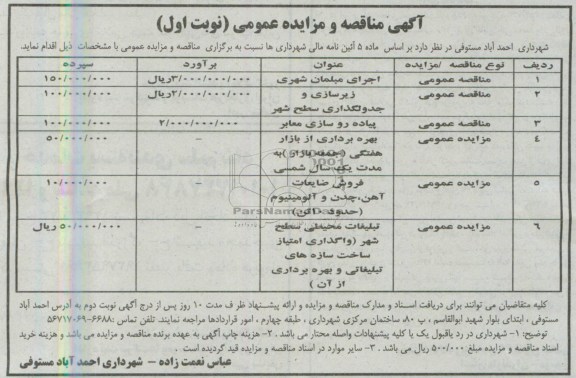 آگهی مناقصه و مزایده عمومی (نوبت اول)
شهرداری احمد آباد مستوفی در نظر دارد بر اساس ماده ۵ آئین نامه مالی شهرداری ها نسبت به برگزاری مناقصه و مزایده عمومی با مشخصات ذیل اقدام نماید.
ردیف نوع مناقصه /مزایده عنوان برآورد سپرده
۱ مناقصه عمومی اجرای مبلمان شهری ۳/۰۰۰/۰۰۰/۰۰۰ریال ۱۵۰/۰۰۰/۰۰۰
۲ مناقصه عمومی زیرسازی و ۲/۰۰۰/۰۰۰/۰۰۰ریال ۱۰۰/۰۰۰/۰۰۰
جدولگذاری سطح شهر
۳ مناقصه عمومی پیاده رو سازی معابر ۲/۰۰۰/۰۰۰/۰۰۰ ۱۰۰/۰۰۰/۰۰۰
۴ مزایده عمومی بهره برداری از بازار – ۵۰/۰۰۰/۰۰۰
هفتگی (جمعه بازار) به
مدت یکهسال شمسی
۵ مزایده عمومی فروش ضایعات – ۱۰/۰۰۰/۰۰۰
آهن،چدن و آلومینیوم
(حدود
۶ مزایده عمومی تبلیغات محیطی سطح – ۵۰/۰۰۰/۰۰۰ ریال
شهر (واگذاری امتیاز
ساخت سازه های
تبلیغاتی و بهره برداری
از آن )
کلیه متقاضیان می توانند برای دریافت اسناد و مدارک مناقصه و مزایده و ارائه پیشنهاد ظرف مدت ۱۰ روز پس از درج آگهی نوبت دوم به آدرس احمد آباد
مستوفی ، ابتدای بلوار شهید ابوالقاسم ، پ ۸۰، ساختمان مرکزی شهرداری ، طبقه چهارم ، امور قراردادها مراجعه نمایند. تلفن تماس :۶۶۸۸-۵۶۷۱۷۰۶۹
توضیح: ۱- شهرداری در رد یاقبول یک یا کلیه پیشنهادات واصله مختار می باشد . ۲- هزینه چاپ آگهی به عهده برنده مناقصه و مزایده می باشد و هزینه خرید
اسناد مناقصه و مزایده مبلغ ۵۰۰/۰۰۰ ریال می باشد . ۳- سایر موارد در اسناد مناقصه و مزایده قید گردیده است .
عباس نعمت زاده – شهرداری احمد آباد مستوفی